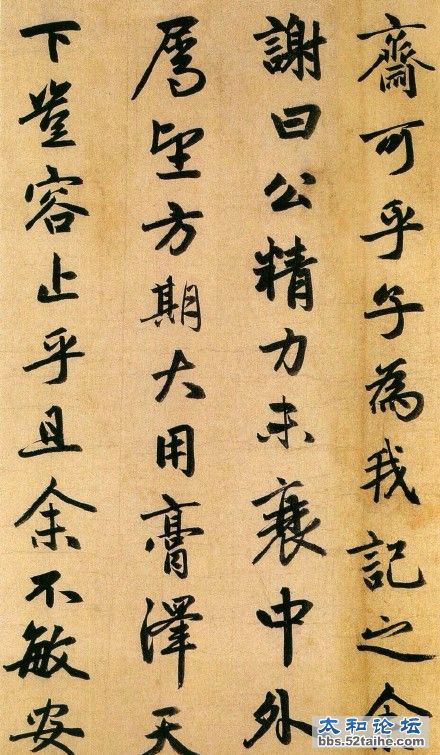 齋可乎子為我記之余
謝曰公精力未衰中外
属望方期大用膏澤天
下豈容止乎且余不敏安
太和论坛
bbs.52taihe.com